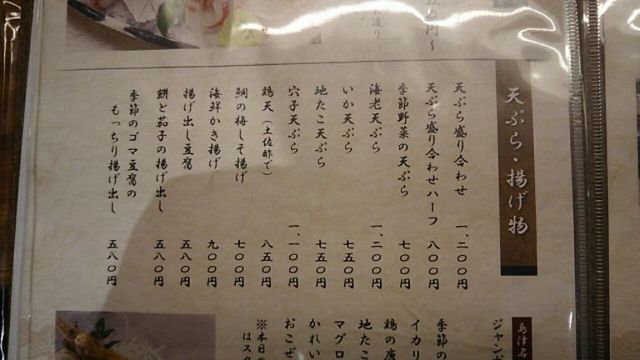 天ぷら・揚げ物
天ぷら盛り合わせ 一、二〇〇円
天ぷら盛り合わせハーフ 八〇〇円
季節野菜の天ぷら 七〇〇円
海老天ぷら 一、二〇〇円
いか天ぷら 七五〇円
地たこ天ぷら 七五〇円
穴子天ぷら 一、一〇〇円
鶏天（土佐酢で） 八五〇円
鯛の梅しそ揚げ 七〇〇円
海鮮かき揚げ 九〇〇円
揚げ出し豆腐 五八〇円
餅と茄子の揚げ出し 五八〇円
季節のゴマ豆腐の
もっちり揚げ出し 五八〇円
ジャンボ
季節の
イカリ
鶏の唐
地たこ
マグロ
かれい
おこぜ
※本日の
はスタ